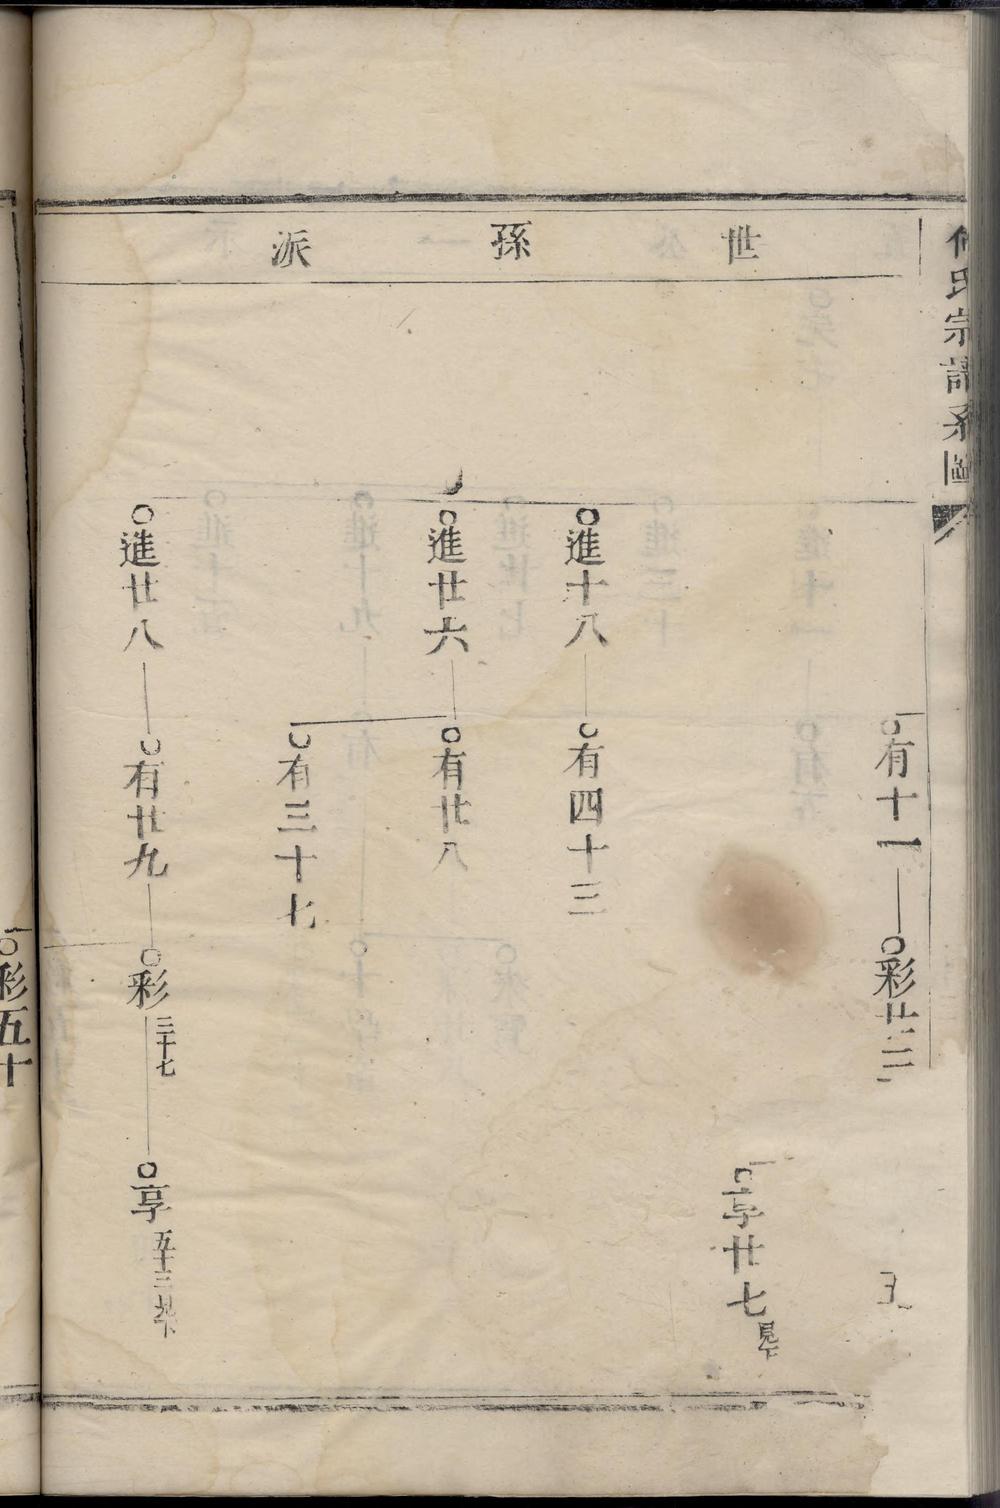 氏宗譜系圖
世孫派
有十一
彩廿三
享廿七見下
進十八
有四十三
進廿六
有廿八
有三十七
進廿八
有廿九
彩三十七
享五十三見下
彩五十